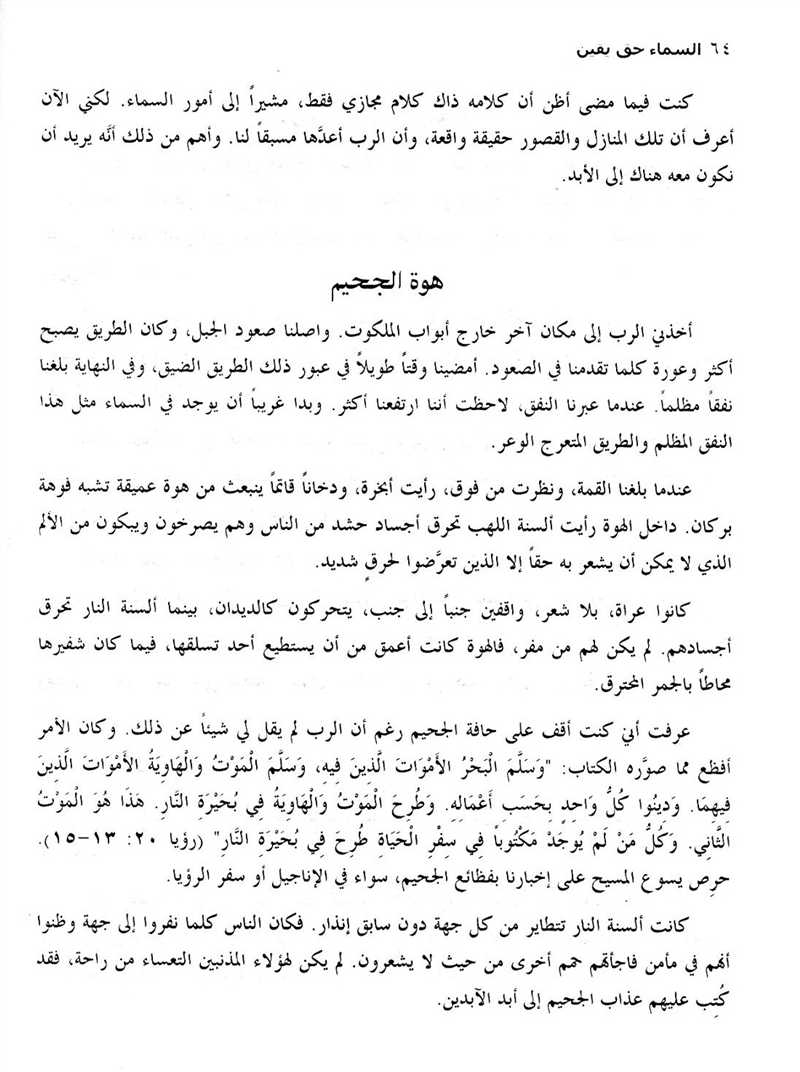 ٦٤ السماء حق يقين
كنت فيما مضى أظن أن كلامه ذاك كلام مجازي فقط، مشيراً إلى أمور السماء. لكني الآن
أعرف أن تلك المنازل والقصور حقيقة واقعة، وأن الرب أعدَّها مسبقاً لنا. وأهم من ذلك أنَّه يريد أن
نكون معه هناك إلى الأبد.
هوة الجحيم
أخذني الرب إلى مكان آخر خارج أبواب الملكوت. واصلنا صعود الجبل، وكان الطريق يصبح
أكثر وعورة كلما تقدمنا في الصعود. أمضينا وقتاً طويلاً في عبور ذلك الطريق الضيق، وفي النهاية بلغنا
نفقاً مظلماً. عندما عبرنا النفق، لاحظت أننا ارتفعنا أكثر. وبدا غريباً أن يوجد في السماء مثل هذا
النفق المظلم والطريق المتعرج الوعر.
عندما بلغنا القمة، ونظرت من فوق، رأيت أبخرة، ودخاناً قاتماً ينبعث من هوة عميقة تشبه فوهة
بركان. داخل الهوة رأيت ألسنة اللهب تحرق أجساد حشد من الناس وهم يصرخون ويبكون من الألم
الذي لا يمكن أن يشعر به حقاً إلا الذين تعرَّضوا لحرقٍ شديد.
كانوا عراة، بلا شعر، واقفين جنباً إلى جنب، يتحركون كالديدان، بينما ألسنة النار تحرق
أجسادهم. لم يكن لهم من مفر، فالهوة كانت أعمق من أن يستطيع أحد تسلقها، فيما كان شفيرها
محاطاً بالجمر المحترق.
عرفت أني كنت أقف على حافة الجحيم رغم أن الرب لم يقل لي شيئاً عن ذلك. وكان الأمر
أفظع مما صوَّره الكتاب: "وَسَلَّمَ الْبَحْرُ الأَمْوَاتَ الَّذِينَ فِيهِ، وَسَلَّمَ الْمَوْتُ وَالْهَاوِيَةُ الأَمْوَاتَ الَّذِينَ
فِيهِمَا. وَدِينُوا كُلُّ وَاحِدٍ بِحَسَبِ أَعْمَالِهِ. وَطُرِحَ الْمَوْتُ وَالْهَاوِيَةُ فِي بُحَيْرَةِ النَّارِ. هَذَا هُوَ الْمَوْتُ
الثَّانِي. وَكُلُّ مَنْ لَمْ يُوجَدْ مَكْتُوباً فِي سِفْرِ الْحَيَاةِ طُرِحَ فِي بُحَيْرَةِ النَّارِ" (رؤيا ٢٠: ١٣-١٥).
حرِص يسوع المسيح على إخبارنا بفظائع الجحيم، سواء في الإناجيل أو سفر الرؤيا.
كانت ألسنة النار تتطاير من كل جهة دون سابق إنذار. فكان الناس كلما نفروا إلى جهة وظنوا
أنهم في مأمن فاجأتهم حمم أخرى من حيث لا يشعرون. لم يكن لهؤلاء المذنبين التعساء من راحة، فقد
كُتِب عليهم عذاب الجحيم إلى أبد الآبدين.